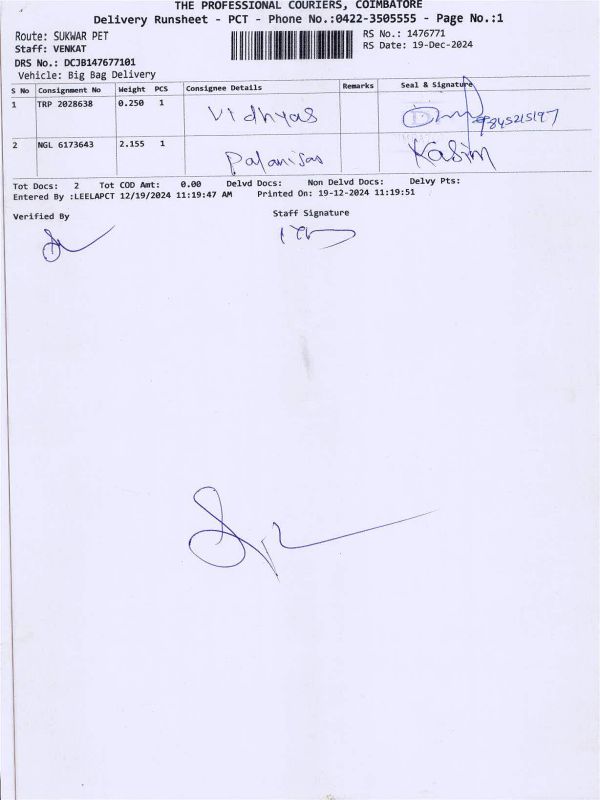 THE PROFESSIONAL COURIERS, COIMBATORE
Delivery Runsheet - PCT - Phone No.:0422-3505555 - Page No.:1
Route: SUKWAR PET RS No.: 1476771
Staff: VENKAT RS Date: 19-Dec-2024
DRS No.: DCJB147677101
Vehicle: Big Bag Delivery
S No Consignment No Weight PCS Consignee Details Remarks Seal & Signature
1 TRP 2028638 0.250 1 Vidhyas
2 NGL 6173643 2.155 1 Palanisas Kasim
Tot Docs: 2 Tot COD Amt: 0.00 Delvd Docs: Non Delvd Docs: Delvy Pts:
Entered By :LEELAPCT 12/19/2024 11:19:47 AM Printed On: 19-12-2024 11:19:51
Verified By Staff Signature